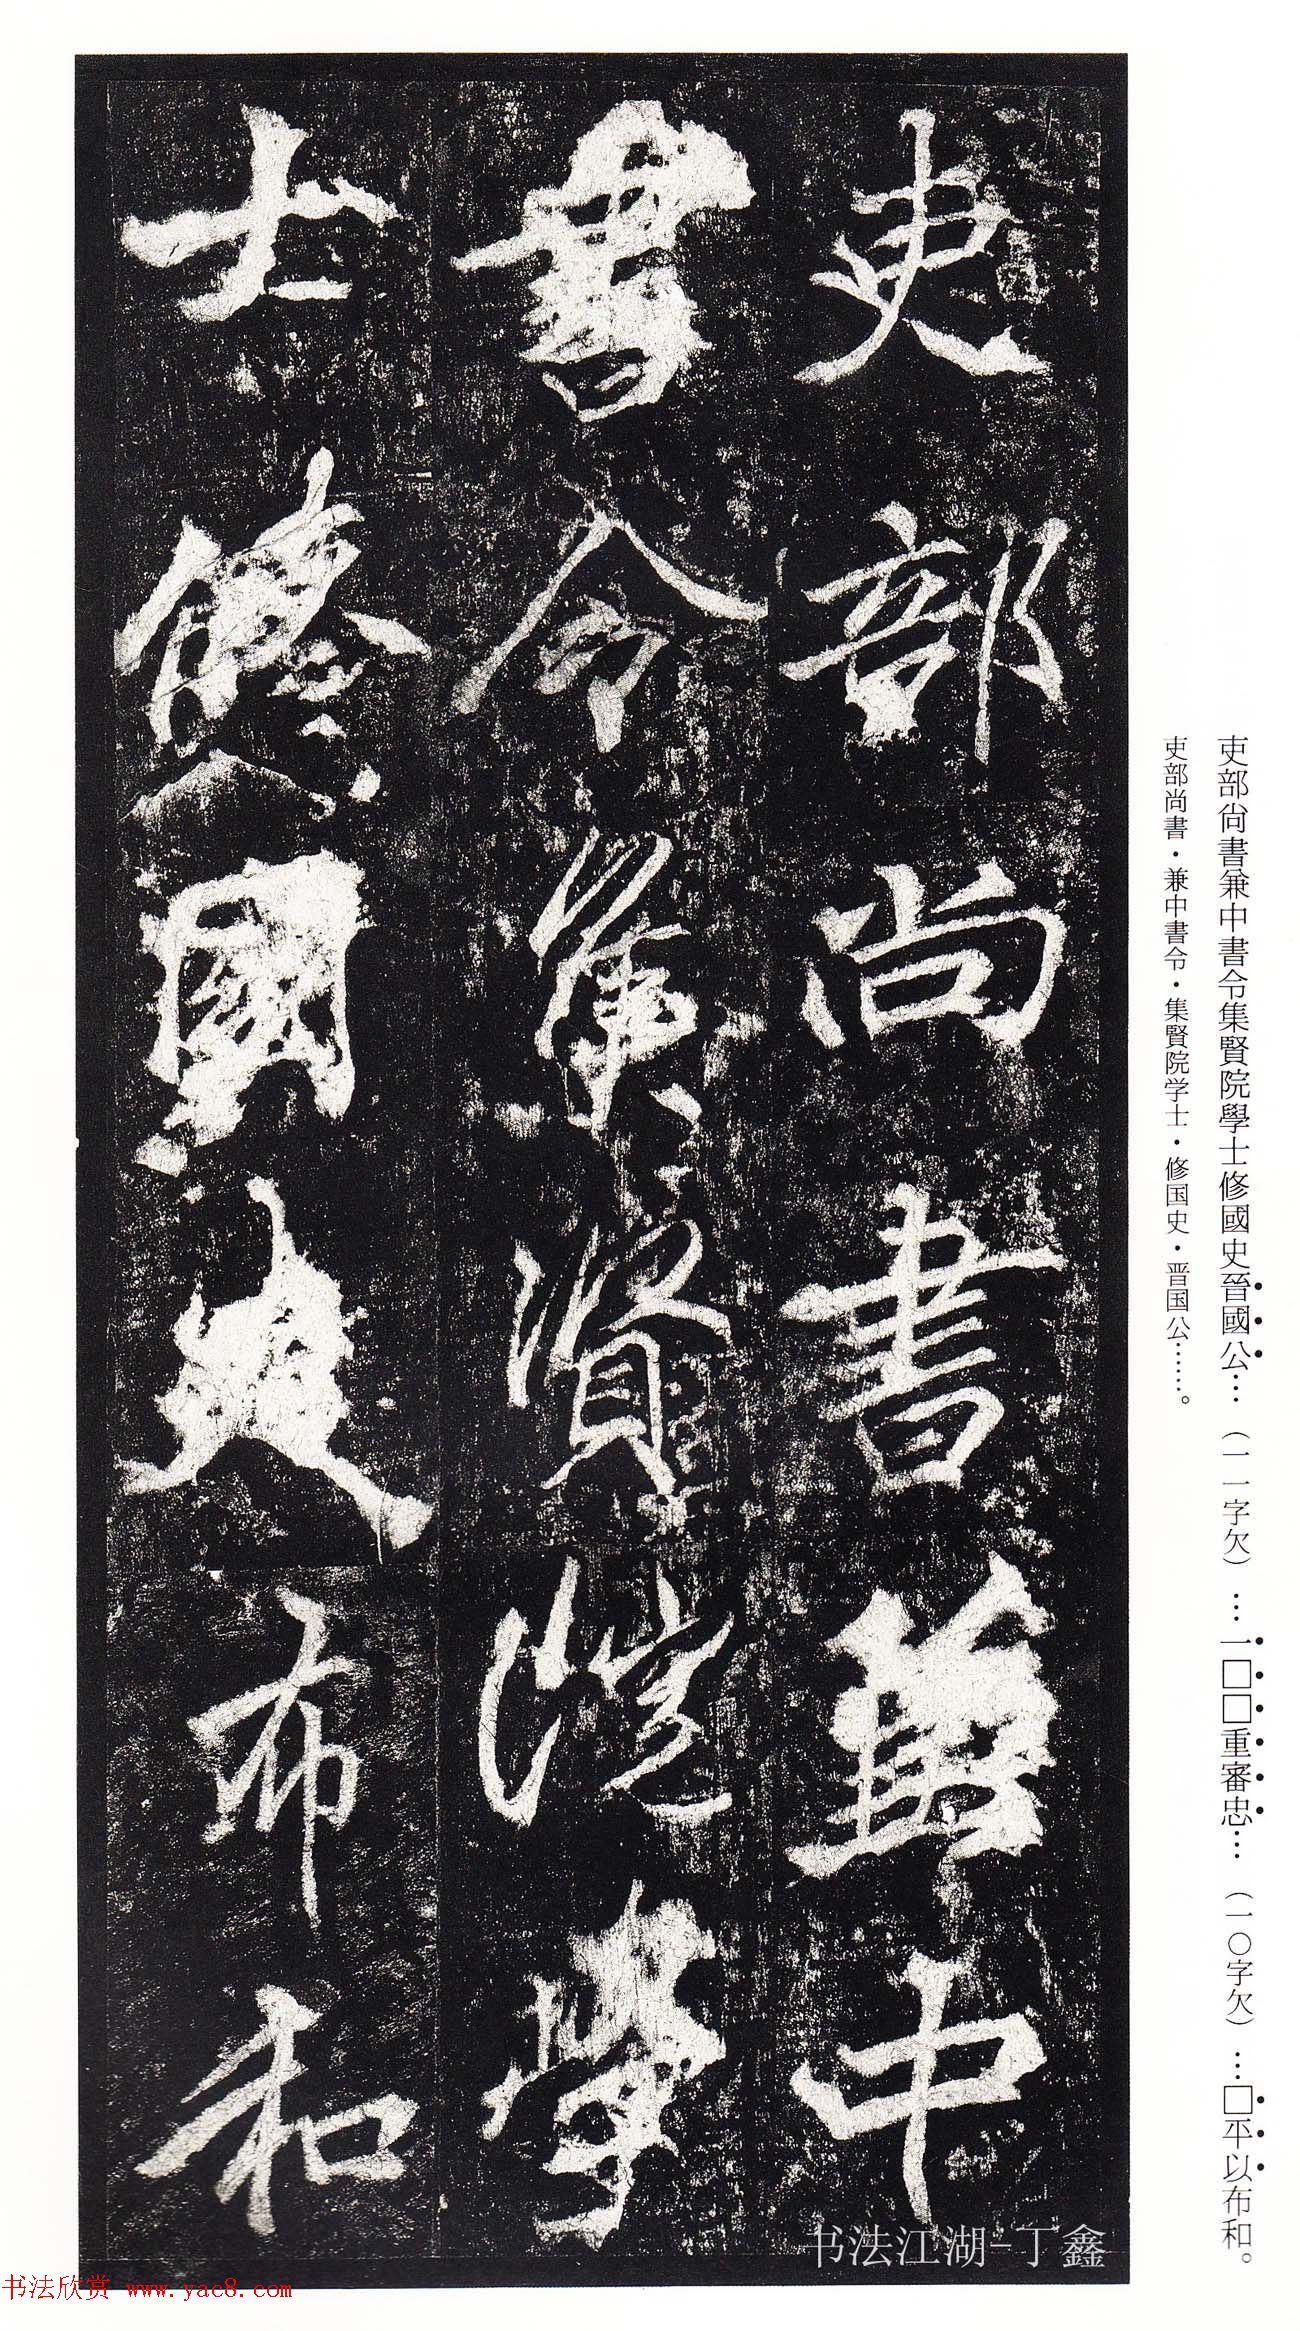 吏部尚書兼中書令集賢院學士修國史晉國公…（一一字欠）…一□□重審忠…（一〇字欠）…□平以布和。
吏部尚書・兼中書令・集賢院学士・修国史・晋国公……。
吏部尚書兼中
書令集賢院學
士修國史布和
书法江湖-丁鑫
书法欣赏 www.yac8.com